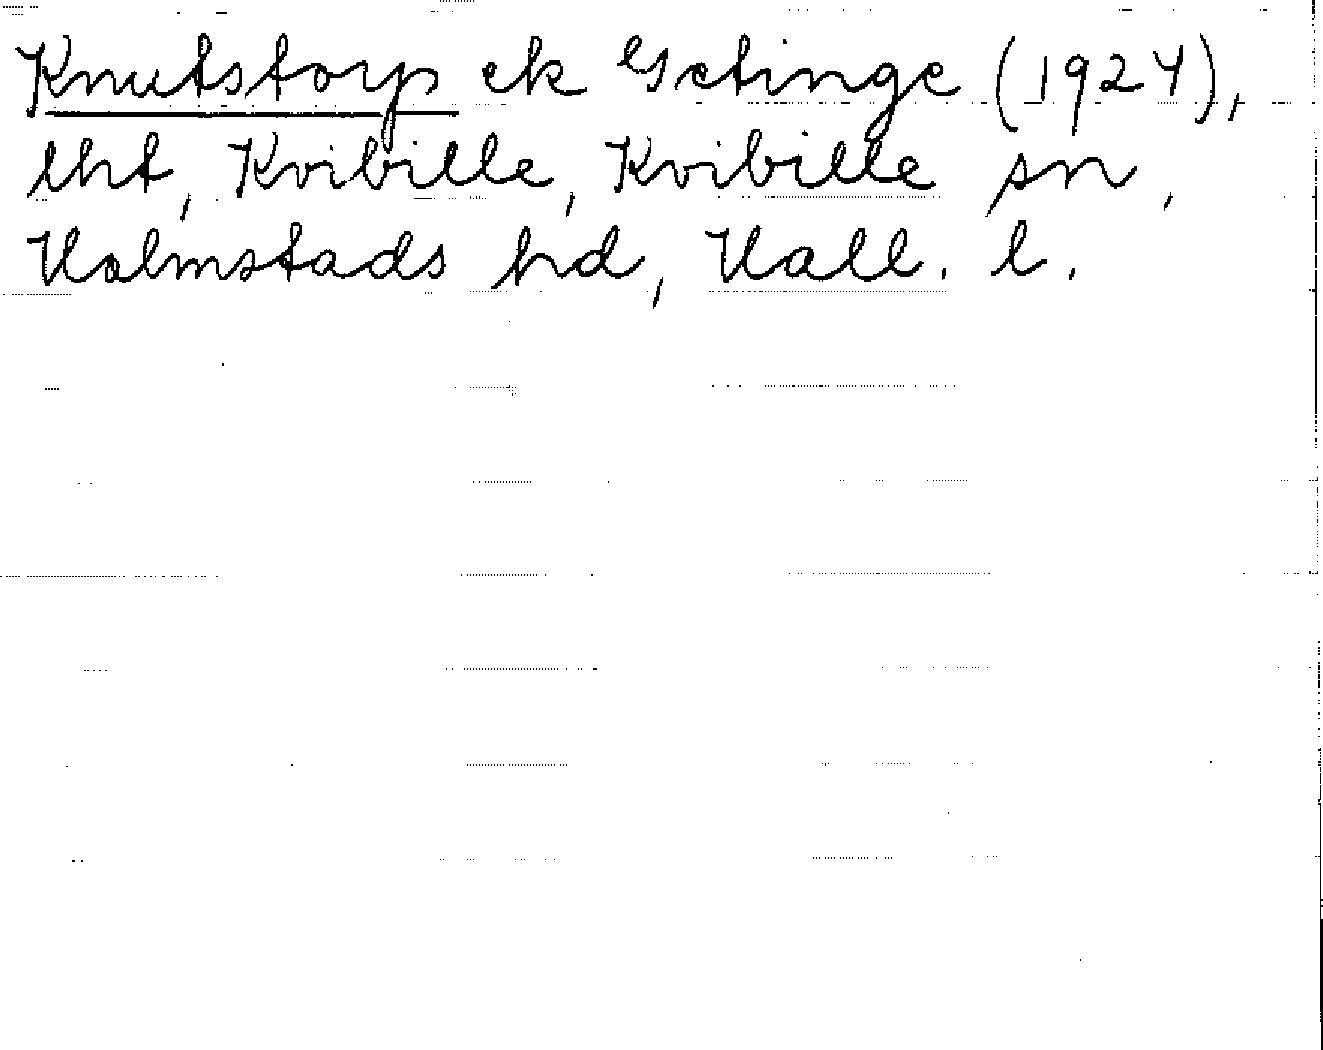 Knutstorp ek Getinge (1924),
lht, Kvibille, Kvibille sn,
Halmstads hd, Hall. l.